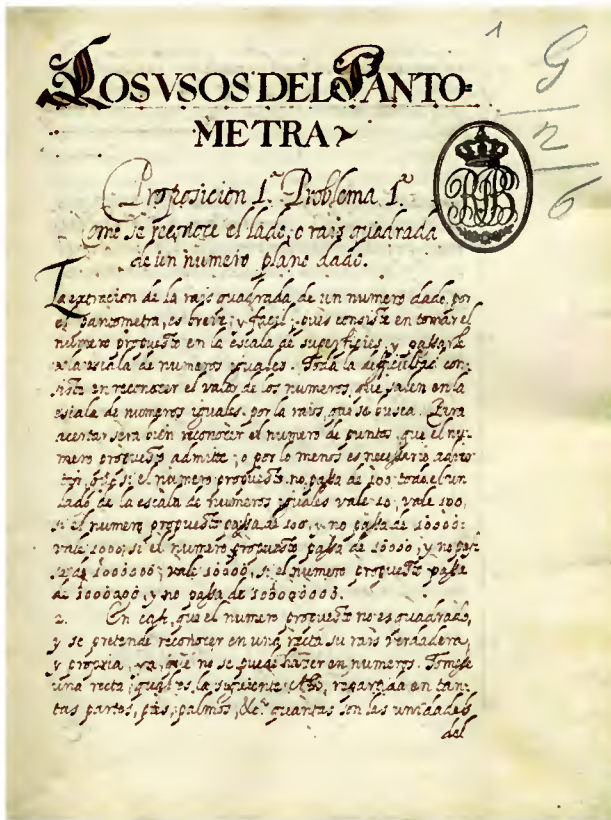 LOS VSOS DEL PANTO=
METRA
1
G
n
6
Proposicion 1.ª Problema 1.º
Como se reconoce el lado, o rais quadrada
de un numero plano dado.
La extracion de la rais quadrada, de un numero dado, por
el Pantometra, es breve, y facil; puis consiste en tomar el
numero propuesto en la escala de superficies, y passarle
a la escala de numeros iguales. Toda la dificultad con-
siste en reconocer el valor de los numeros, que salen en la
escala de numeros iguales, por la rais, que se busca. Para
acertar sera bien reconocer el numero de puntos, que el nu-
mero propuesto admite; o por lo menos es necessario adver-
tir, que si el numero propuesto no passa de 100 todo el un
lado de la escala de numeros iguales vale 10; vale 100,
si el numero propuesto passa de 100, y no passa de 10000:
vale 1000, si el numero propuesto passa de 10000, y no pas-
sa de 1000000; vale 10000, si el numero propuesto passa
de 1000000, y no passa de 100000000.
2. En caso, que el numero propuesto no es quadrado,
y se pretende reconocer en una recta su rais verdadera,
y propria, ya, que no se puede hazer en numeros. Tomese
una recta, qual es la siguiente repartida en tan-
tas partes, pies, palmos, &c.ª quantas son las unidades
del